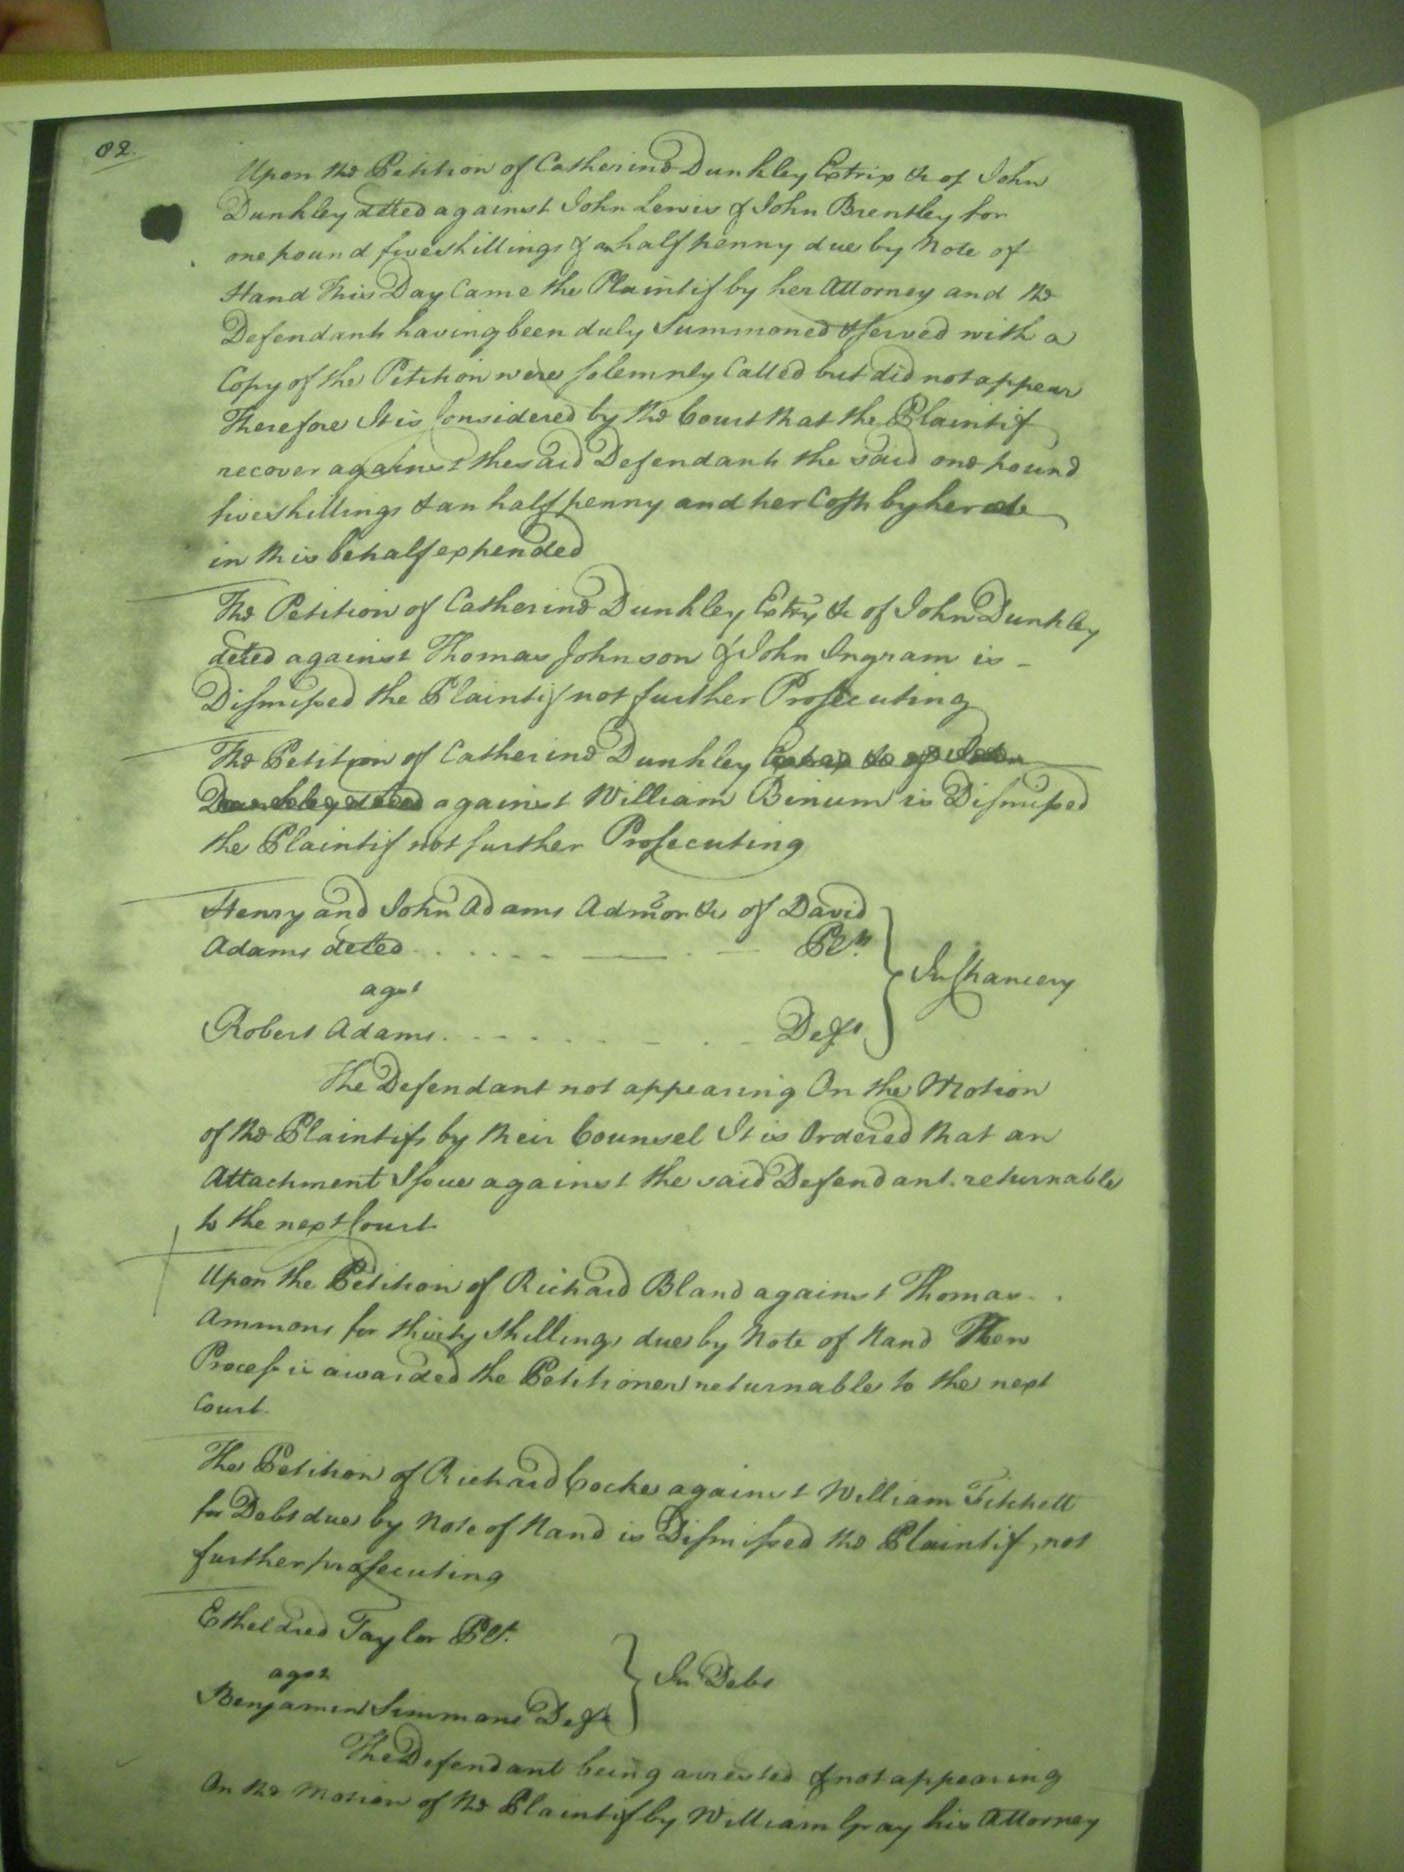 82.
Upon the Petition of Catherine Dunkley Extrix &c of John
Dunkley deced against John Lewis & John Brentley for
one pound five shillings & an half penny due by Note of
Hand This Day Came the Plaintif by her Attorney and the
Defendants having been duly Summoned & served with a
Copy of the Petition were solemnly Called but did not appear
Therefore It is Considered by the Court that the Plaintif
recover against the said Defendants the said one pound
five shillings & an half penny and her Costs by her
in this behalf expended
The Petition of Catherine Dunkley Extrx &c of John Dunkley
deced against Thomas Johnson & John Ingram is
Dismissed the Plaintif not further Prosecuting
The Petition of Catherine Dunkley Extrix &c of John
Dunkley deced against William Binum is Dismissed
the Plaintif not further Prosecuting
Henry and John Adams Admors &c of David
Adams deced Plts.
agst
Robert Adams Deft
In Chancery
The Defendant not appearing On the Motion
of the Plaintifs by their Counsel It is Ordered that an
Attachment Issue against the said Defendant returnable
to the next Court
Upon the Petition of Richard Bland against Thomas
Ammons for thirty shillings due by Note of Hand Then
Process is awarded the Petitioner returnable to the next
Court
The Petition of Richard Cocke against William Tikkett
for Debt due by Note of Hand is Dismissed the Plaintif not
further prosecuting
Etheldred Taylor Plt.
agst
Benjamin Simmons Deft
In Debt
The Defendant being arrested & not appearing
On the Motion of the Plaintif by William Gray his Attorney